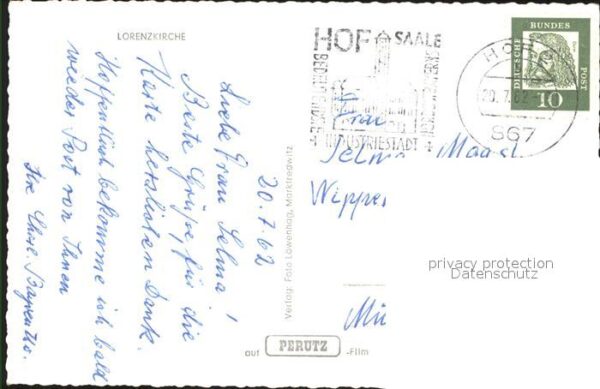 LORENZKIRCHE
20.7.62
Liebe Frau Selma!
Beste Grüße, für die
Karte herzlichen Dank.
Hoffentlich bekomme ich bald
wieder Post von Ihnen
Ihre
Verlag: Foto Löwenhag, Marktredwitz
auf PERUTZ -Film
HOF SAALE
INDUSTRIESTADT
HOF
20.7.62
867
DEUTSCHE BUNDES POST
10
Frau
Selma
Wipper
privacy protection
Datenschutz